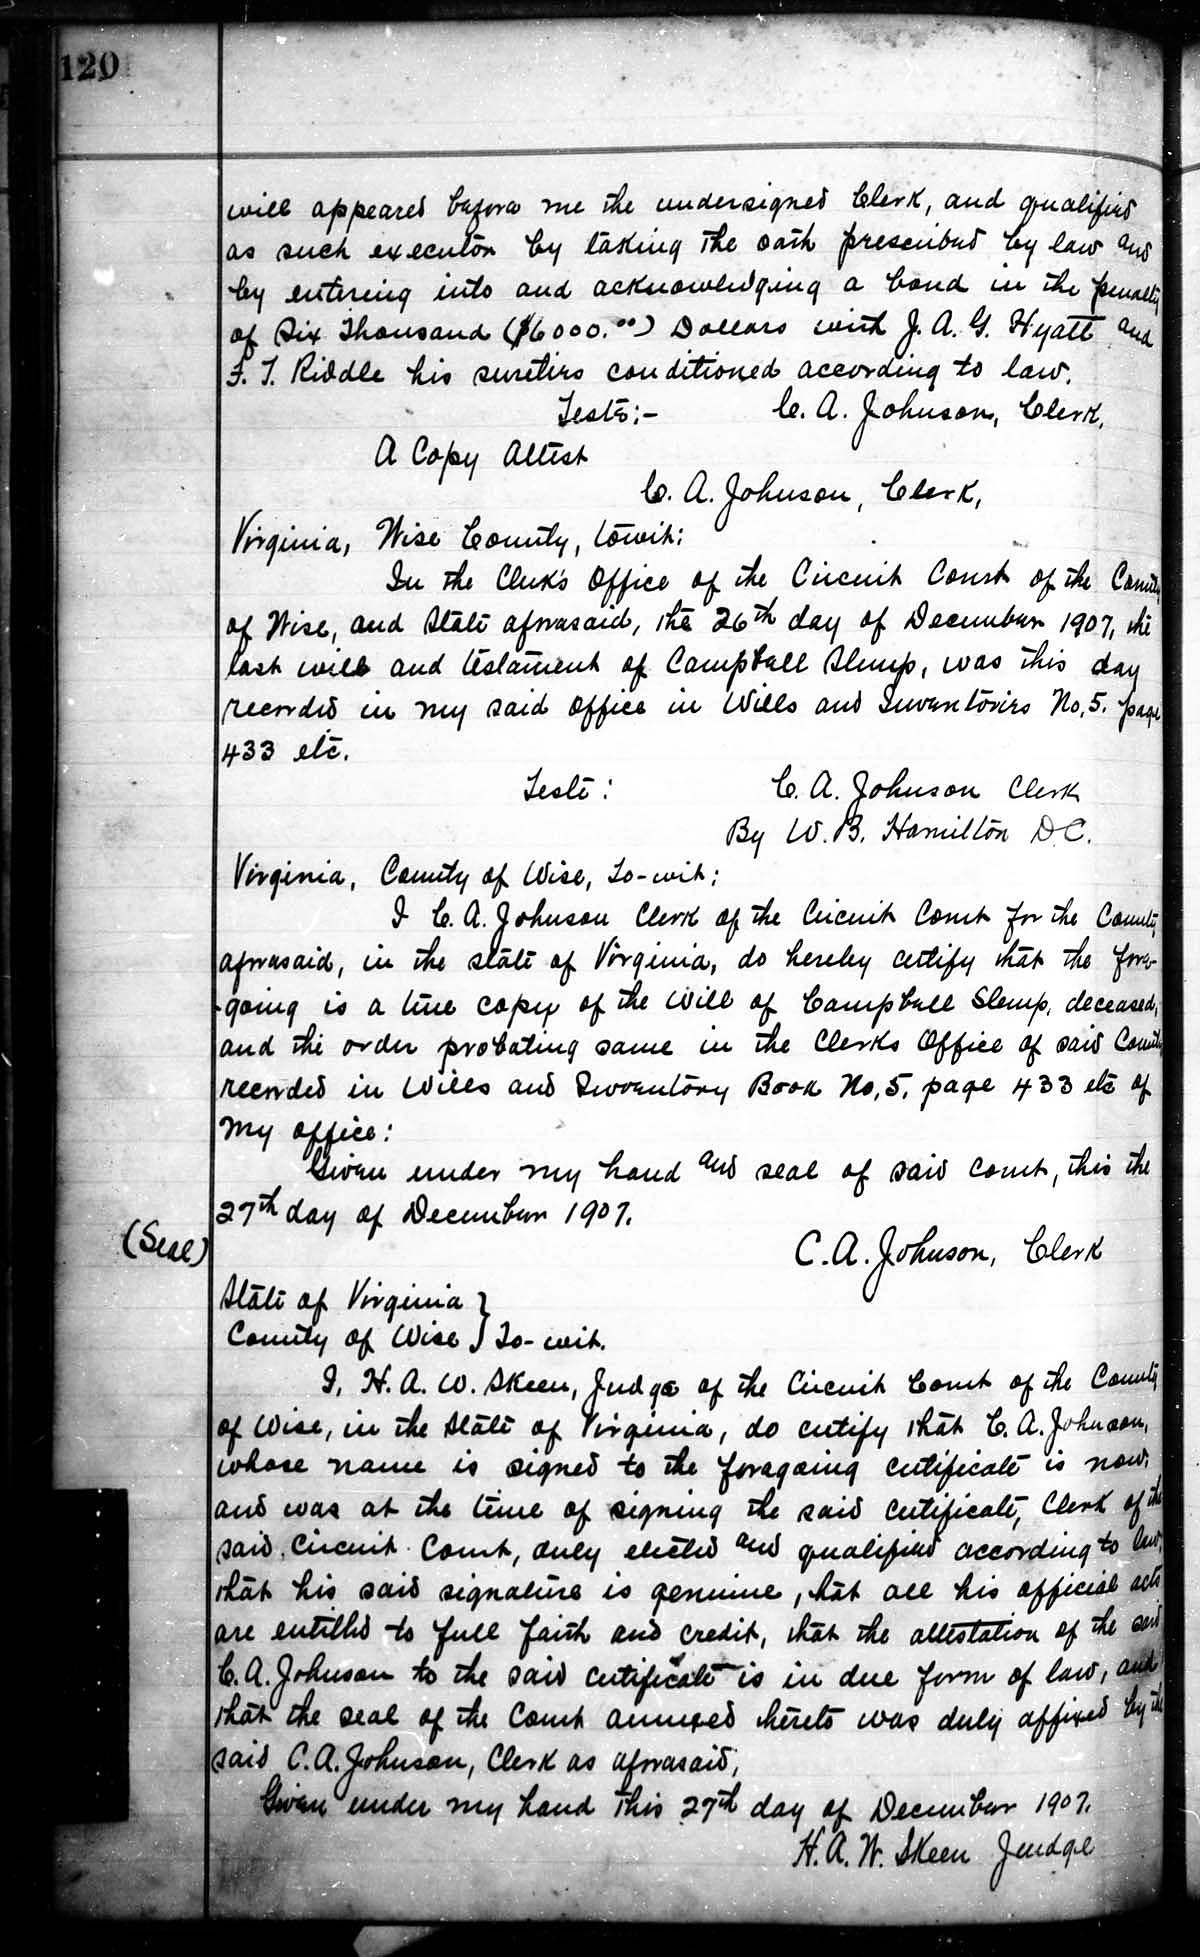 120
will appeared before me the undersigned Clerk, and qualified
as such executor by taking the oath prescribed by law and
by entering into and acknowledging a bond in the penalty
of Six Thousand ($6000.00) Dollars with J. A. G. Hyatt and
F. T. Riddle his sureties conditioned according to law.
Teste:- C. A. Johnson, Clerk.
A Copy Attest
C. A. Johnson, Clerk,
Virginia, Wise County, towit:
In the Clerk's Office of the Circuit Court of the County
of Wise, and State aforesaid, the 26th day of December 1907, the
last will and testament of Campbell Slemp, was this day
recorded in my said office in Wills and Inventories No, 5. page
433 etc.
Teste: C. A. Johnson Clerk
By W. B. Hamilton D.C.
Virginia, County of Wise, To-wit:
I C. A. Johnson Clerk of the Circuit Court for the County
aforesaid, in the state of Virginia, do hereby certify that the fore-
-going is a true copy of the Will of Campbell Slemp, deceased,
and the order probating same in the Clerks Office of said County
recorded in Wills and Inventory Book No, 5, page 433 etc of
my office:
Given under my hand and seal of said Court, this the
27th day of December 1907.
(Seal) C. A. Johnson, Clerk
State of Virginia }
County of Wise } To-wit.
I, H. A. W. Skeen, Judge of the Circuit Court of the County
of Wise, in the State of Virginia, do certify that C. A. Johnson,
whose name is signed to the foregoing certificate is now,
and was at the time of signing the said certificate, Clerk of the
said Circuit Court, duly elected and qualified according to law,
that his said signature is genuine, that all his official acts
are entitled to full faith and credit, that the attestation of the said
C. A. Johnson to the said certificate is in due form of law, and
that the seal of the Court annexed hereto was duly affixed by the
said C. A. Johnson, Clerk as aforesaid,
Given under my hand this 27th day of December 1907.
H. A. W. Skeen Judge